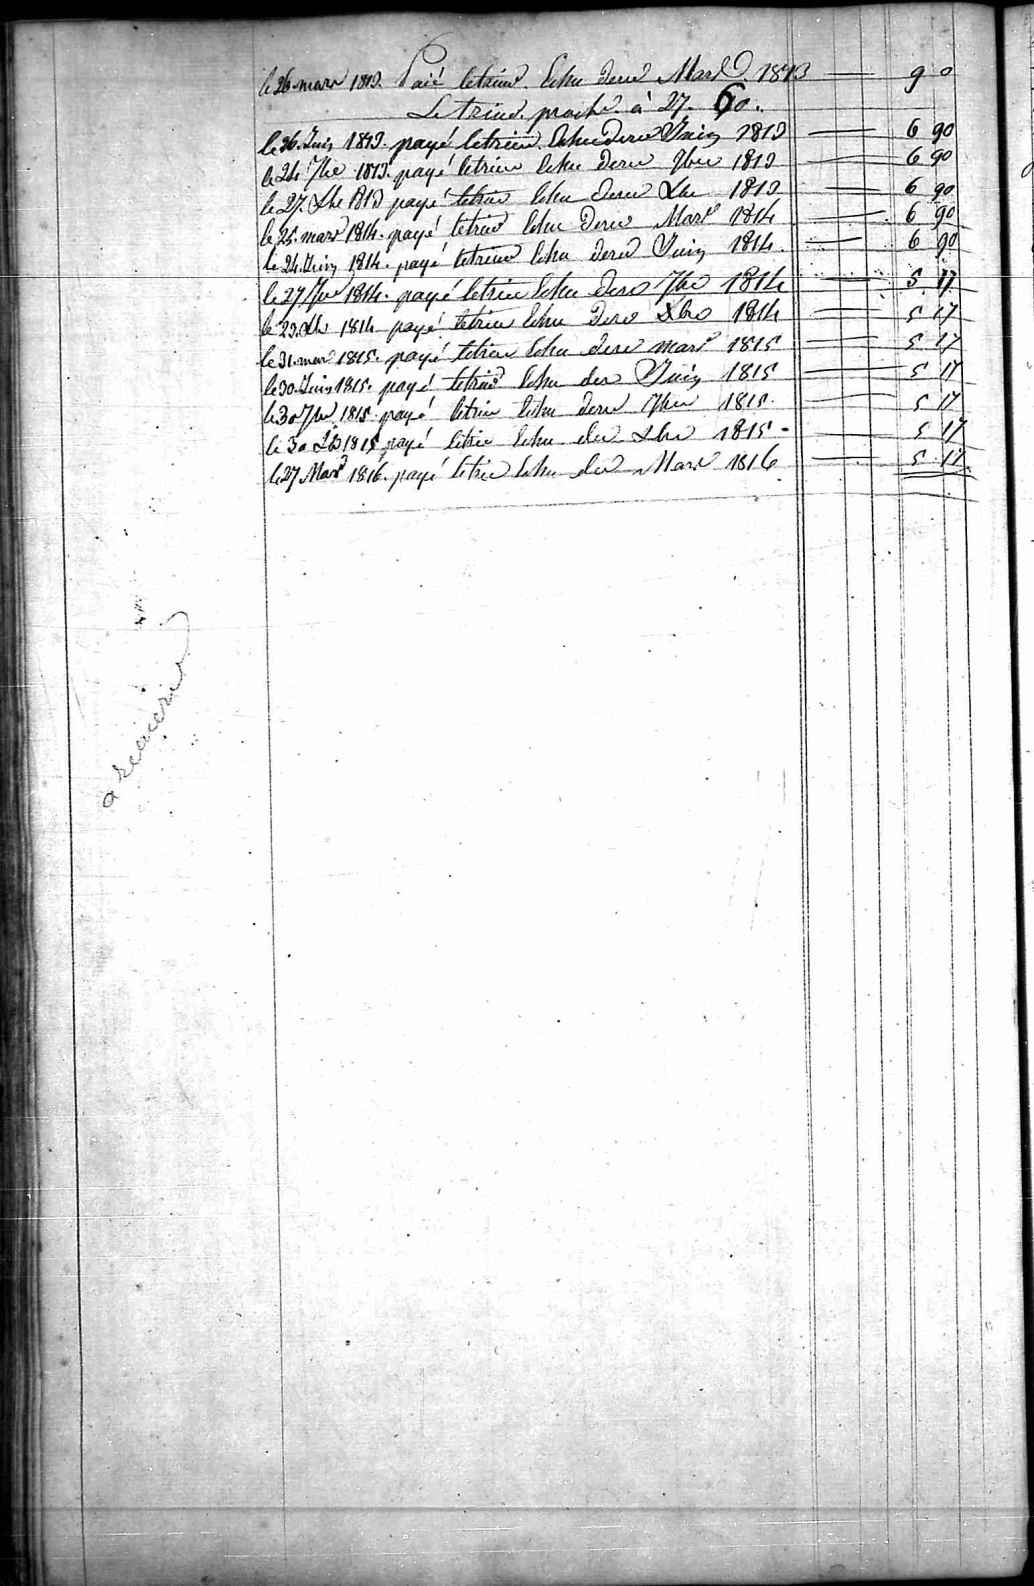 le 26 mars 1813. Paié letrim. Echu Deru Mars 1813 — 9 0
Le trim. proche à 27. 60.
le 26. Juin 1813. payé letrim. Echu Deru Juin 1813 — 6 90
le 24 7be 1813. payé letrim Echu Deru 7bre 1813 — 6 90
le 27. Xbe 1813 payé letrim Echu Deru Xbe 1813 — 6 90
le 25. mars 1814. payé letrim Echu Deru Mars 1814 — 6 90
le 24. Juin 1814. payé letrim Echu Deru Juin 1814. — 6 90
le 27 7bre 1814. payé letrim Echu Deru 7bre 1814 — 5 17
le 23. Xb 1814 payé letrim Echu Deru Xbre 1814 — 5 17
le 31. mars 1815. payé letrim Echu deru mars 1815 — 5 17
le 30. Juin 1815. payé letrim Echu der Juin 1815 — 5 17
le 30 7bre 1815. payé letrim Echu deru 7bre 1815. — 5 17
le 30 Xb 1815 payé letrim Echu der Xbre 1815 - — 5 17
le 27 Mars 1816. payé letrim Echu der Mars 1816 — 5 17